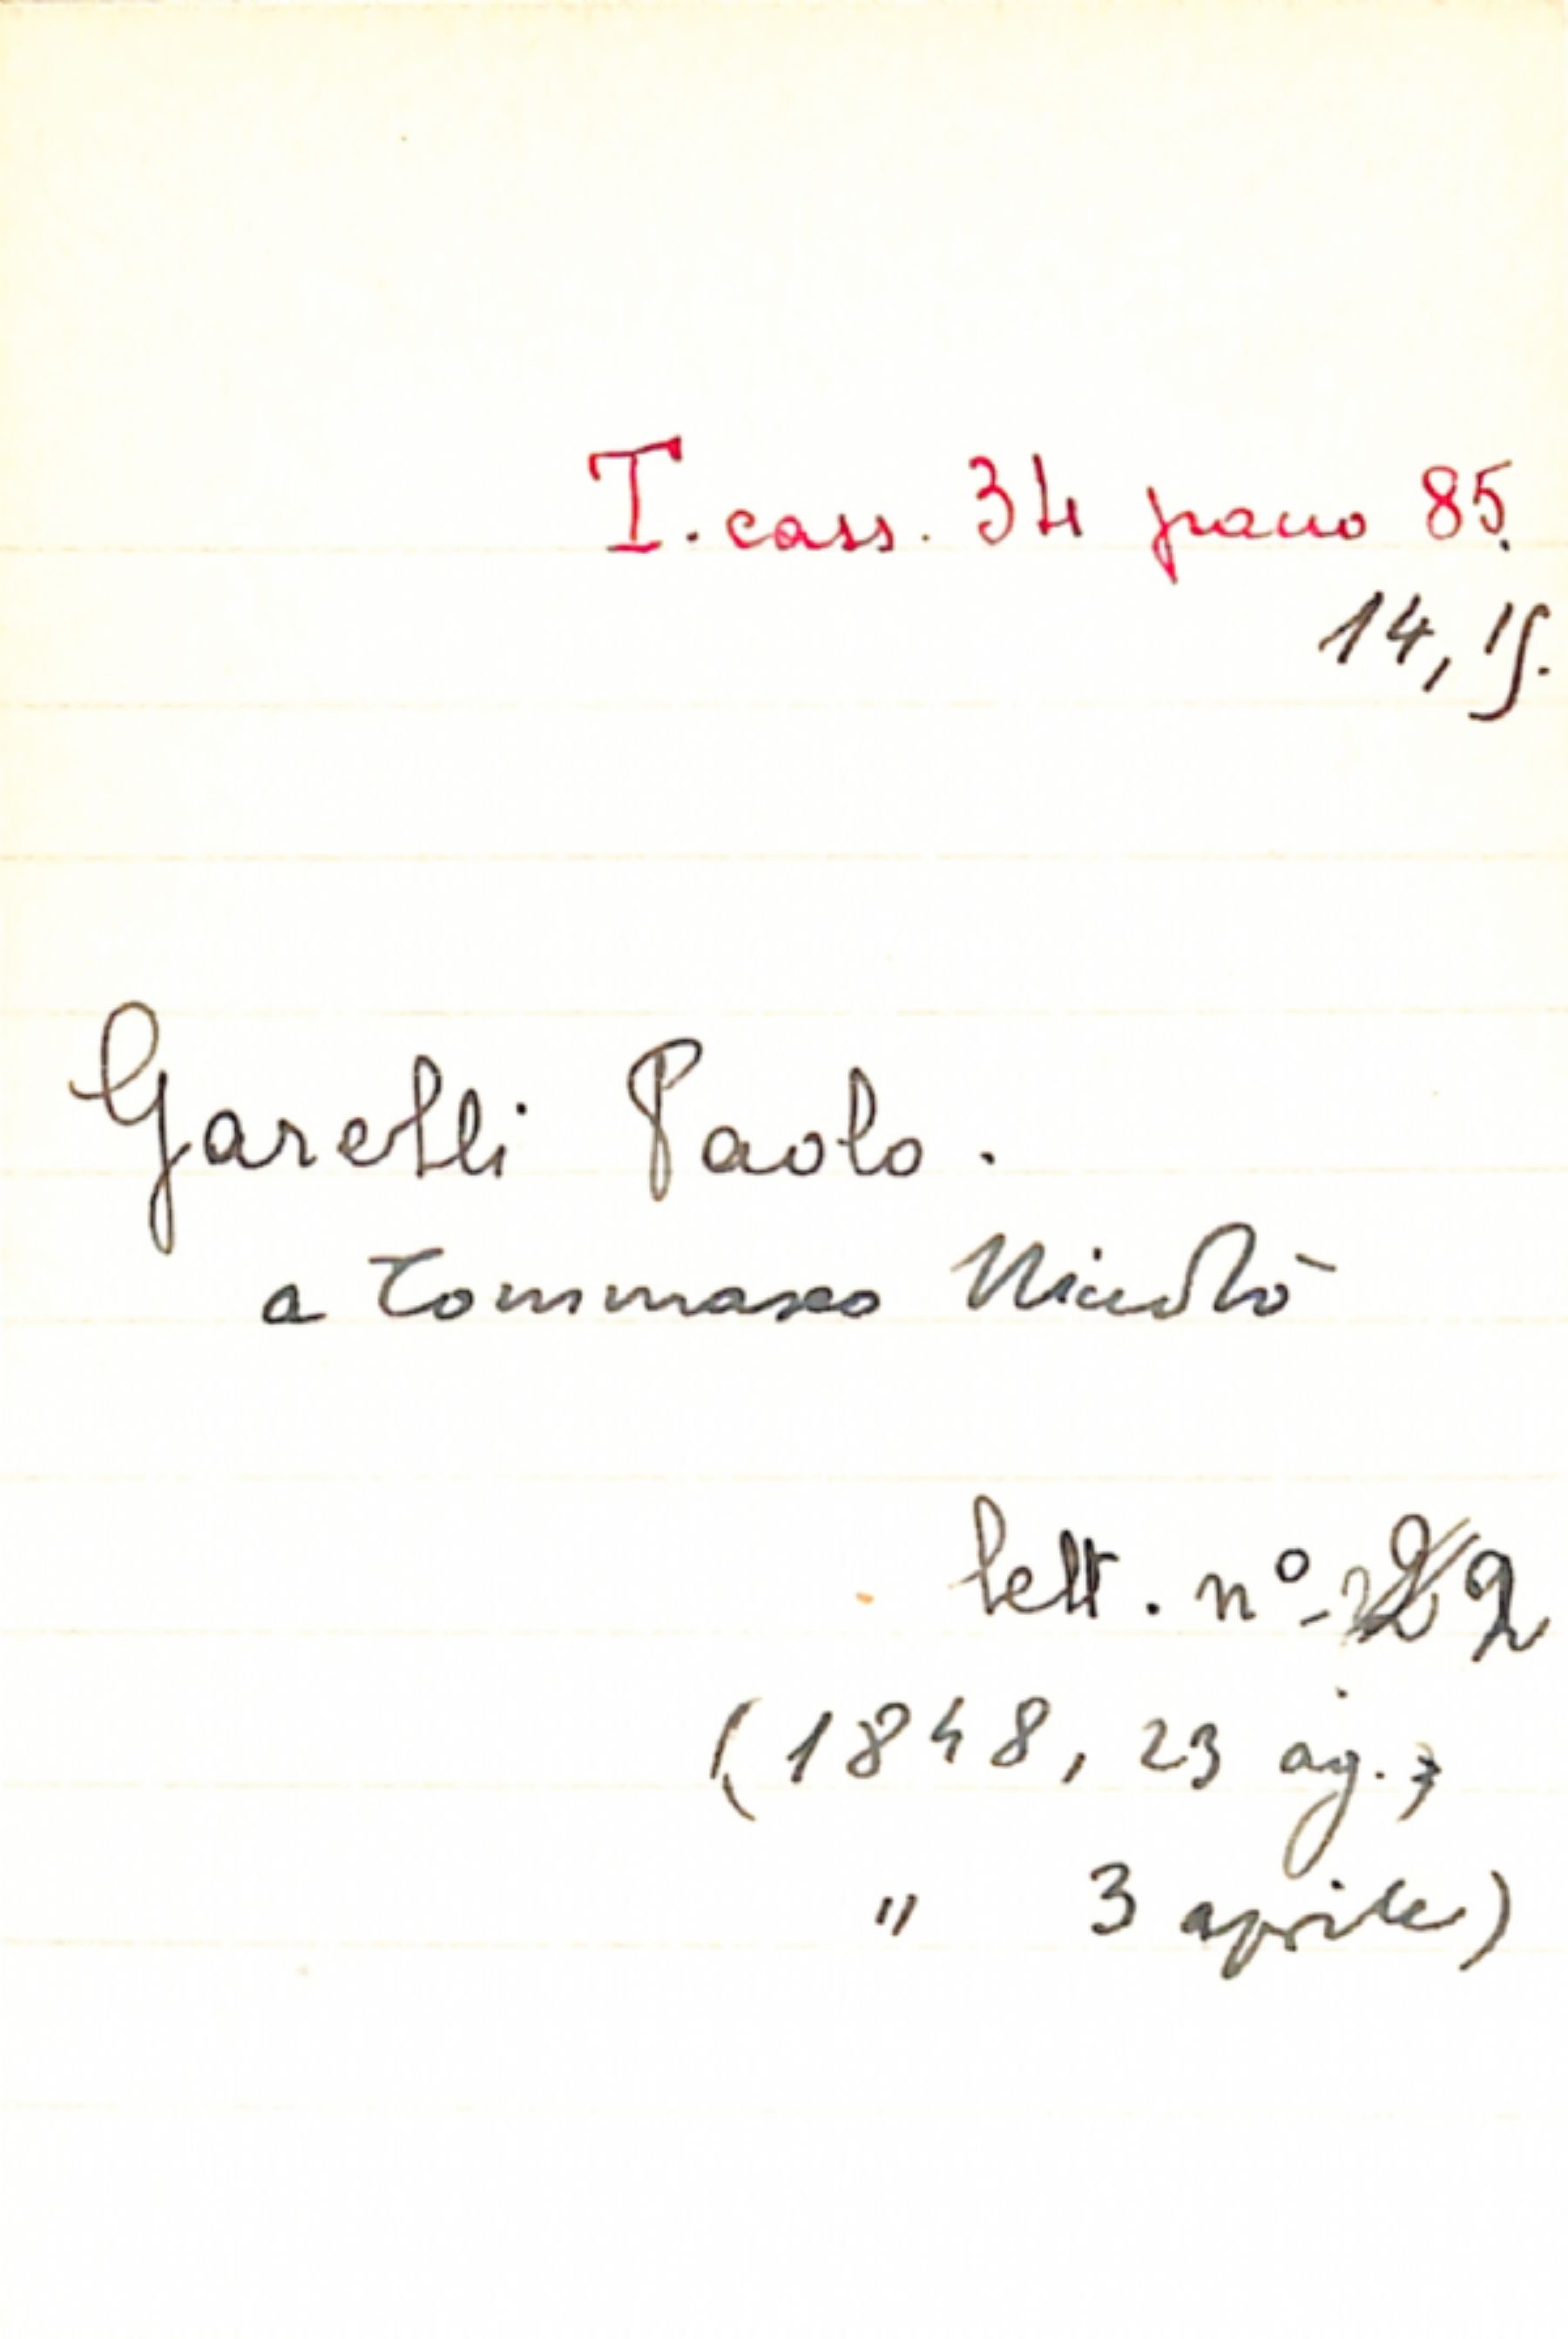 T. cass. 34 piano 85.
14, 15.
Garelli Paolo.
a Tommaseo Niccolò
lett. nº 2
(1848, 23 ag.;
" 3 aprile)